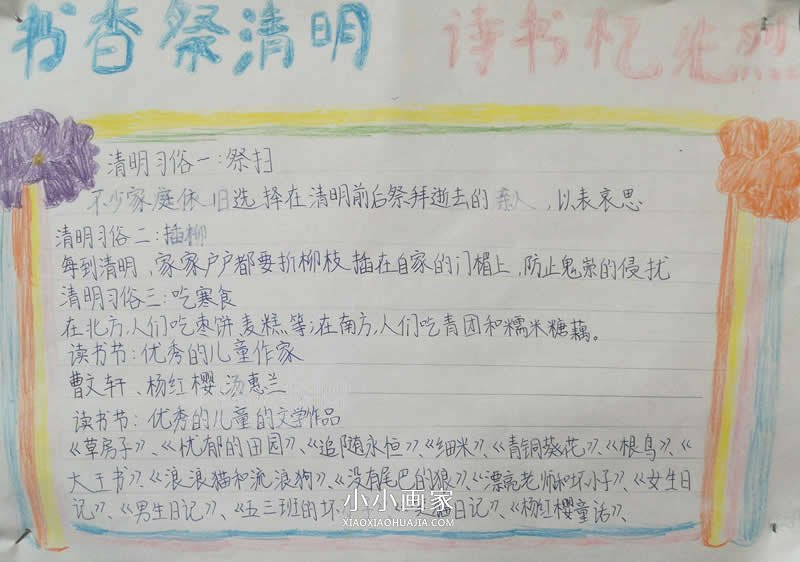 书香祭清明 读书忆先烈
清明习俗一:祭扫
不少家庭依旧选择在清明前后祭拜逝去的亲人,以表哀思
清明习俗二:插柳
每到清明,家家户户都要折柳枝插在自家的门楣上,防止鬼祟的侵扰
清明习俗三:吃寒食
在北方,人们吃枣饼、麦糕等;在南方,人们吃青团和糯米糖藕。
读书节:优秀的儿童作家
曹文轩、杨红樱、汤惠兰
读书节:优秀的儿童的文学作品
《草房子》、《忧郁的田园》、《追随永恒》、《细米》、《青铜葵花》、《根鸟》、《
大王书》、《浪浪猫和流浪狗》、《没有尾巴的狼》、《漂亮老师和坏小子》、《女生日
记》、《男生日记》、《五三班的坏 日记》、《杨红樱童话》、
小小画家
XIAOXIAOHUAJIA.COM